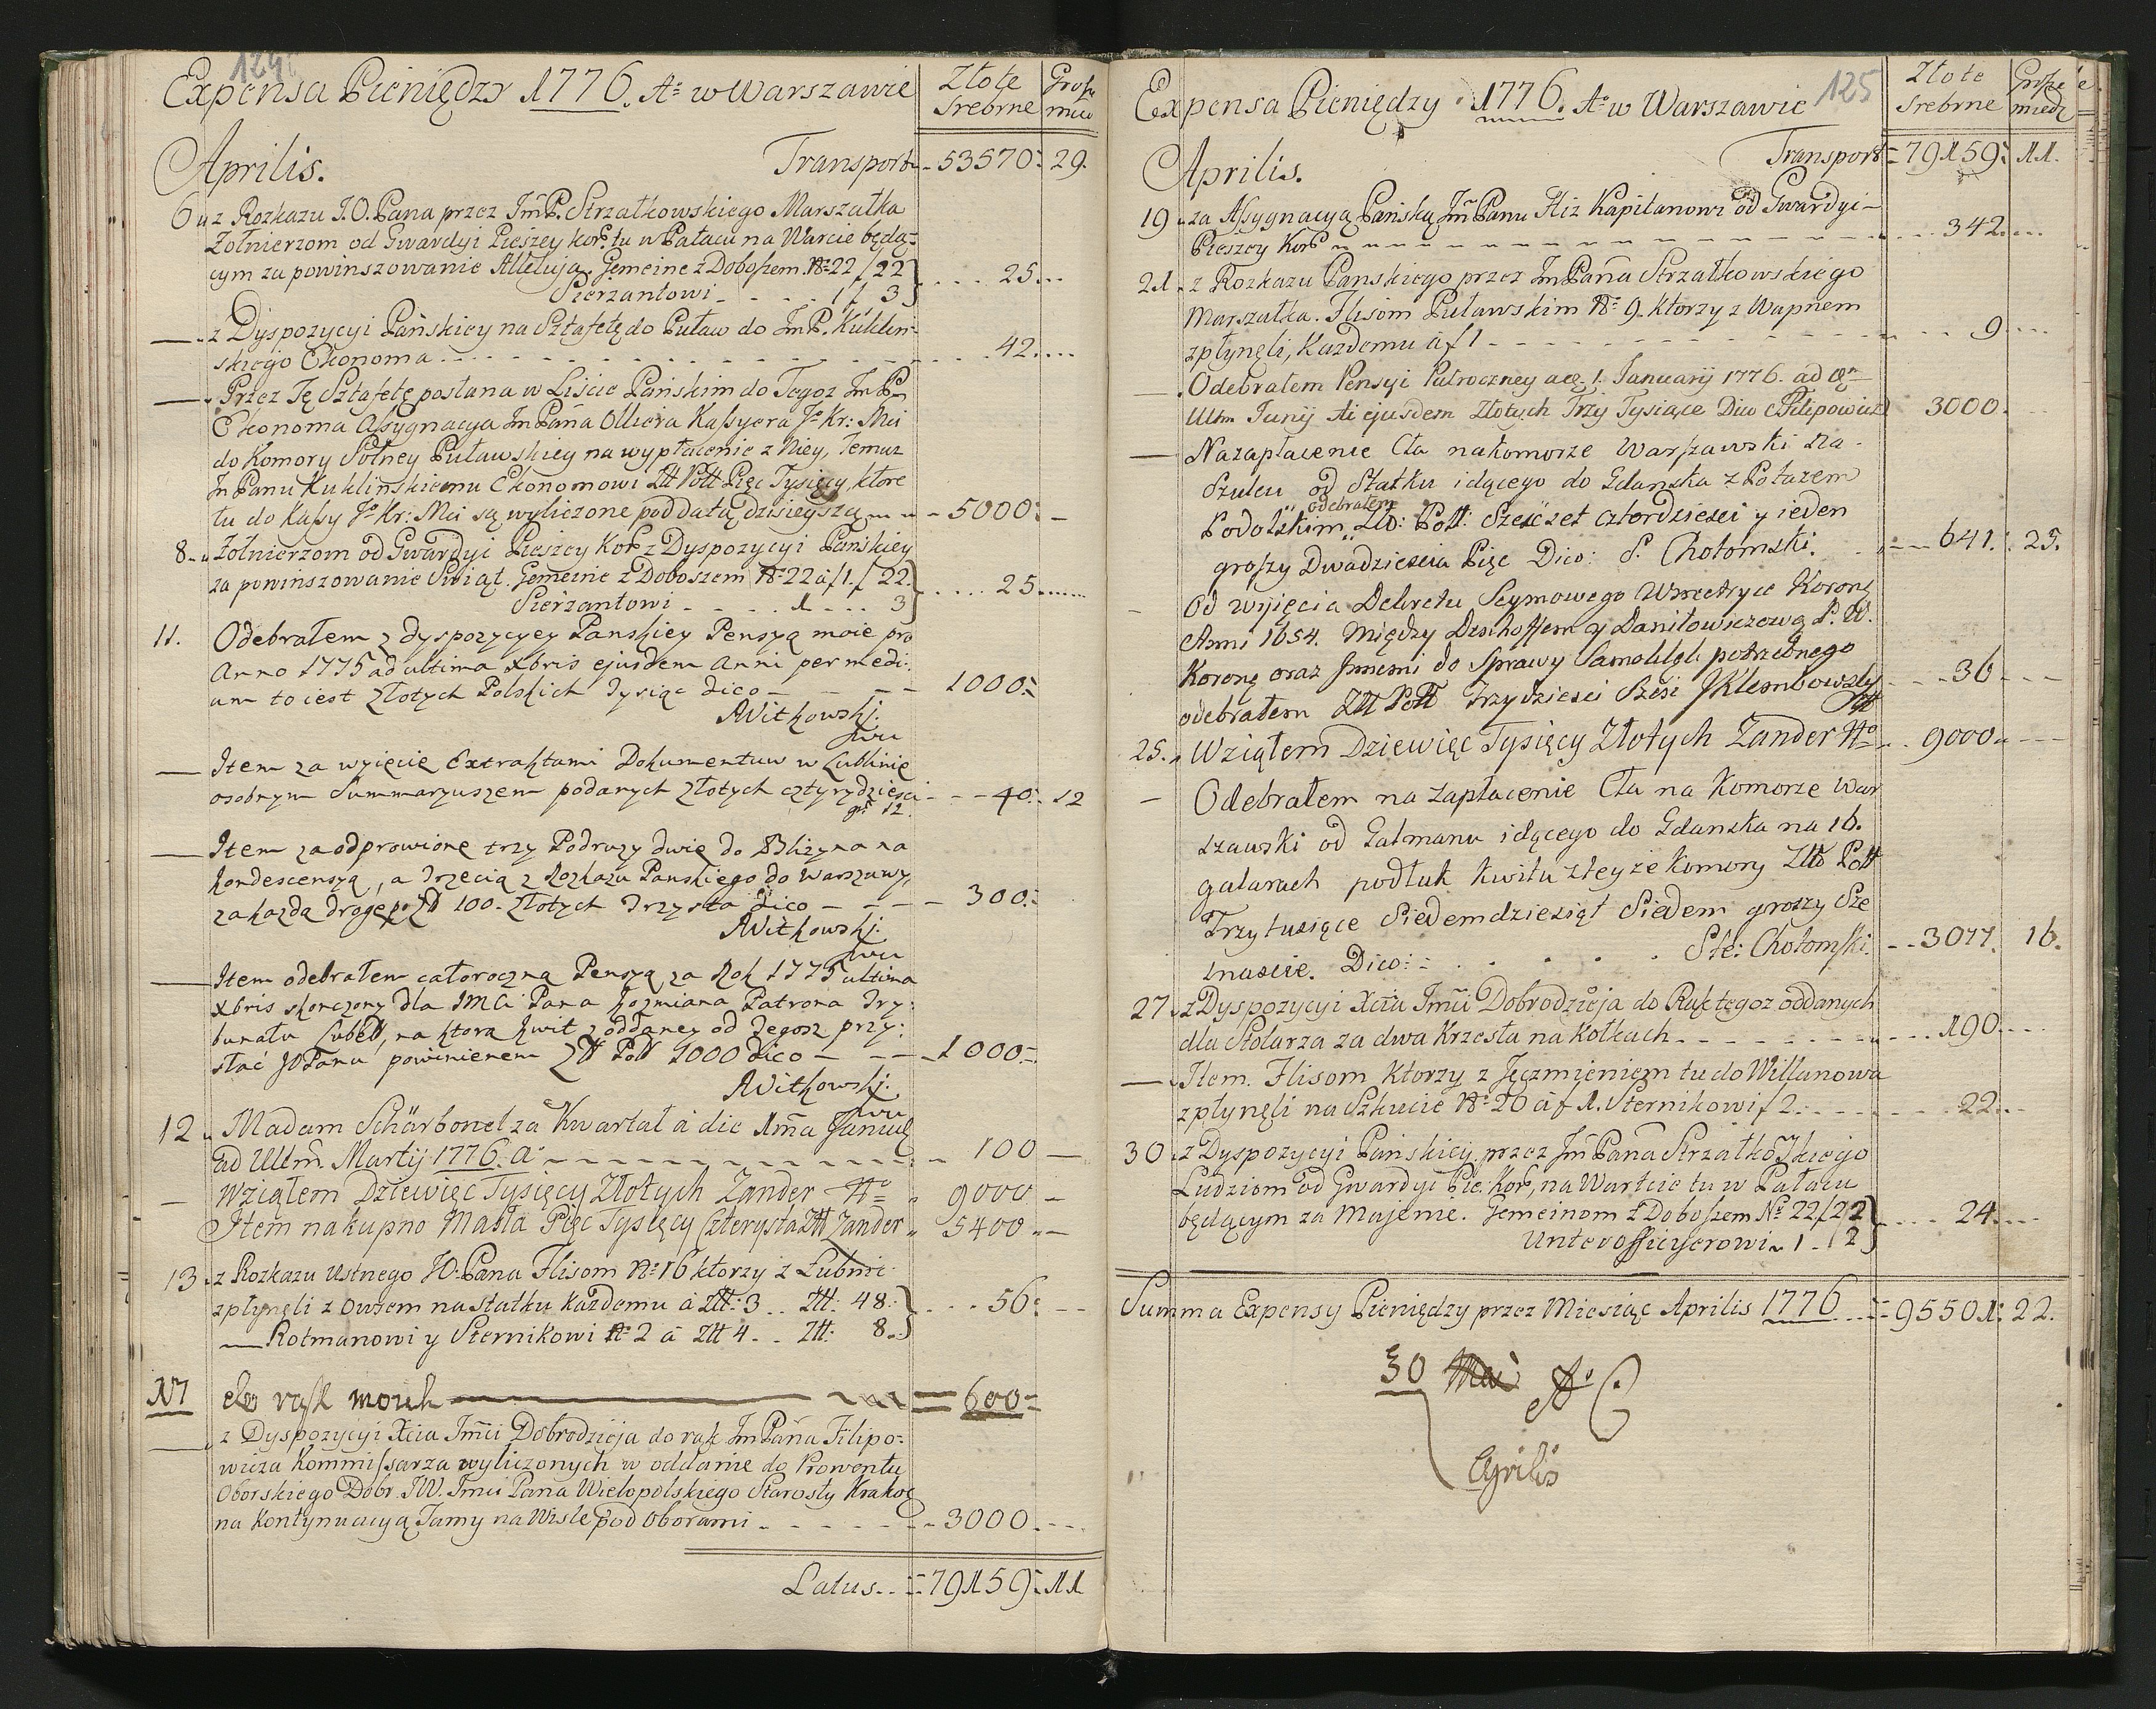 124
Expensa Pieniędzy 1776. Aº w Warszawie
Złote Srebrne
Grosze
Aprilis.
Transport 53570: 29.
6 z Rozkazu J.O. Pana przez JmP. Strzałkowskiego Marszałka
Żołnierzom od Gwardyi Pieszey Kor: tu w Pałacu na Warcie będą-
cym za powinszowanie Alleluja. Gemeine z Doboszem Nº 22 f 22
Sierzantowi 1 f 3
25
z Dyspozycyi Pańskiey na Sztafetę do Puław do JmP. Kuklin-
skiego Ekonoma
42
Przez Tę Sztafetę posłana w Liście Pańskim do Tegoz JmP.
Ekonoma Assygnacya JmPana Olliera Kassyera Jº Kr: Mci
do Komory Solney Puławskiey na wypłacenie z Niey, Temuz
JmPanu Kuklinskiemu Ekonomowi Złł Poll Pięc Tysięcy, które
tu do Kassy Jº Kr: Mci są wyliczone pod datą dzisieyszą 5000:
8. Żołnierzom od Gwardyi Pieszey Kor: z Dyspozycyi Pańskiey
za powinszowanie Swiąt. Gemeine z Doboszem Nº 22 á f 1. f 22.
Sierżantowi 1 3
25
11. Odebrałem z dyspozycyey Panskiey Pensyą moie pro
Anno 1775 ad ultima Xbris ejusdem Anni per medi:
um to iest Złotych Polskich Tysiąc dico 1000:
AWitkowski
Item za wyięcie Extraktami Dokumentuw w Lublinie
osobnym Summaryuszem podanych Złotych cztyrydziesci 40: 12
gr. 12.
Item za odprowione trzy Podruzy dwie do Bliżyna na
kondescensyą, a Trzecią z Rozkazu Panskiego do Warszawy,
za kazdą drogę po Zł 100. Złotych Trzysta dico 300:
AWitkowski
Item odebrałem całoroczną Pensyą za Rok 1775 ultima
Xbris skonczony dla IMCi Pana Kozmiana Patrona Try:
bunału Lubell, na ktora kwit z oddaney od Jegosz przy:
słać JOPanu powinienem Złł Poll 1000 dico 1000:
AWitkowski
12 Madam Schärbonel za Kwartał à die 1ma Januarij
ad Ultm. Martij 1776. Aº 100
Wziąłem Dziewięc Tysięcy Złotych Zander 9000
Item na kupno Masła Pięc Tysięcy Czterysta Złł Zander 5400
13 z Rozkazu ustnego JO. Pana Flisom Nº 16 ktorzy z Łubnic
zpłynęli z owsem na statku każdemu à Złł: 3 .. Złł: 48:
56:
Rotmanowi y Sternikowi Nº 2 à Złł 4.. Złł: 8.
17 do rąk moich 600
z Dyspozycyi Xcia Jmci Dobrodzieja do rąk JmPana Filipo-
wicza Kommissarza wyliczonych w oddanie do Prowentu
Oborskiego Dobr JW. Jmci Pana Wielopolskiego Starosty Krakog
na kontynuacyą Tamy na Wisle pod Oborami 3000
Latus 79159: 11
125
Expensa Pieniędzy 1776. Aº w Warszawie
Złote Srebrne
Grosze miedz
Aprilis.
Transport 79159: 11.
19 za Assygnacyą Pańską Jm Panu Hiz Kapitanowi od Gwardyi
Pieszey Kor 342
21. z Rozkazu Panskiego przez JmPana Strzałkowskiego
Marszałka. Flisom Puławskim Nº 9. ktorzy z Wapnem
zpłynęli, Każdemu á f 1 9
Odebrałem Pensyi Pułroczney a 1. Januarij 1776. ad
Ultm Junij Ai ejusdem Złotych Trzy Tysiące Dico Filipowicz 3000.
Na zapłacenie Cła na komorze Warszawski na
Szulcu od Statku idącego do Gdanska z Potazem
Podolskim odebrałem Złł: Poll: Szescset czterdziesci y ieden
groszy Dwadziescia Pięc Dico: S. Chołomski. 641. 25.
Od wyięcia Dekretu Seymowego w Metryce Korong
Anni 1654. między Denhoffem y Daniłowiczową P. W.
Koronę oraz Innemi do Sprawy Samo potrzebnego
odebrałem Złł Poll Trzydziesci Szesc JKlembowsky 36
25. Wziąłem Dziewięc Tysięcy Złotych Zander 9000
Odebrałem na zapłacenie Cła na Komorze War
szawski od Galmanu idącego do Gdanska na 16.
galarach podłuk kwitu z teyże komory Złł Poll
Trzy tusiące Siedemdziesiąt Siedem groszy Sze
snascie. Dico: Ste: Chołomski. 3077. 16.
27 z Dyspozycyi Xcia Jmci Dobrodzieja do Rąk tegoz oddanych
dla Stolarza za dwa Krzesła na Kołkach 190
Item. Flisom ktorzy z Jęczmieniem tu do Willanowa
zpłynęli na Szkucie Nº 20 á f 1. Sternikowi f 2. 22
30 z Dyspozycyi Pańskiey, przez Jm Pana Strzałkowskiego
Ludziom od Gwardyi Pie. Kor, na Warcie tu w Pałacu
będącym za Majenie. Gemeinom z Doboszem Nº 22 f 22
24
Unterofficyerowi 1 f 2
Summa Expensy Pieniędzy przez Miesiąc Aprilis 1776 95501: 22.
30 Mai
Aprilis